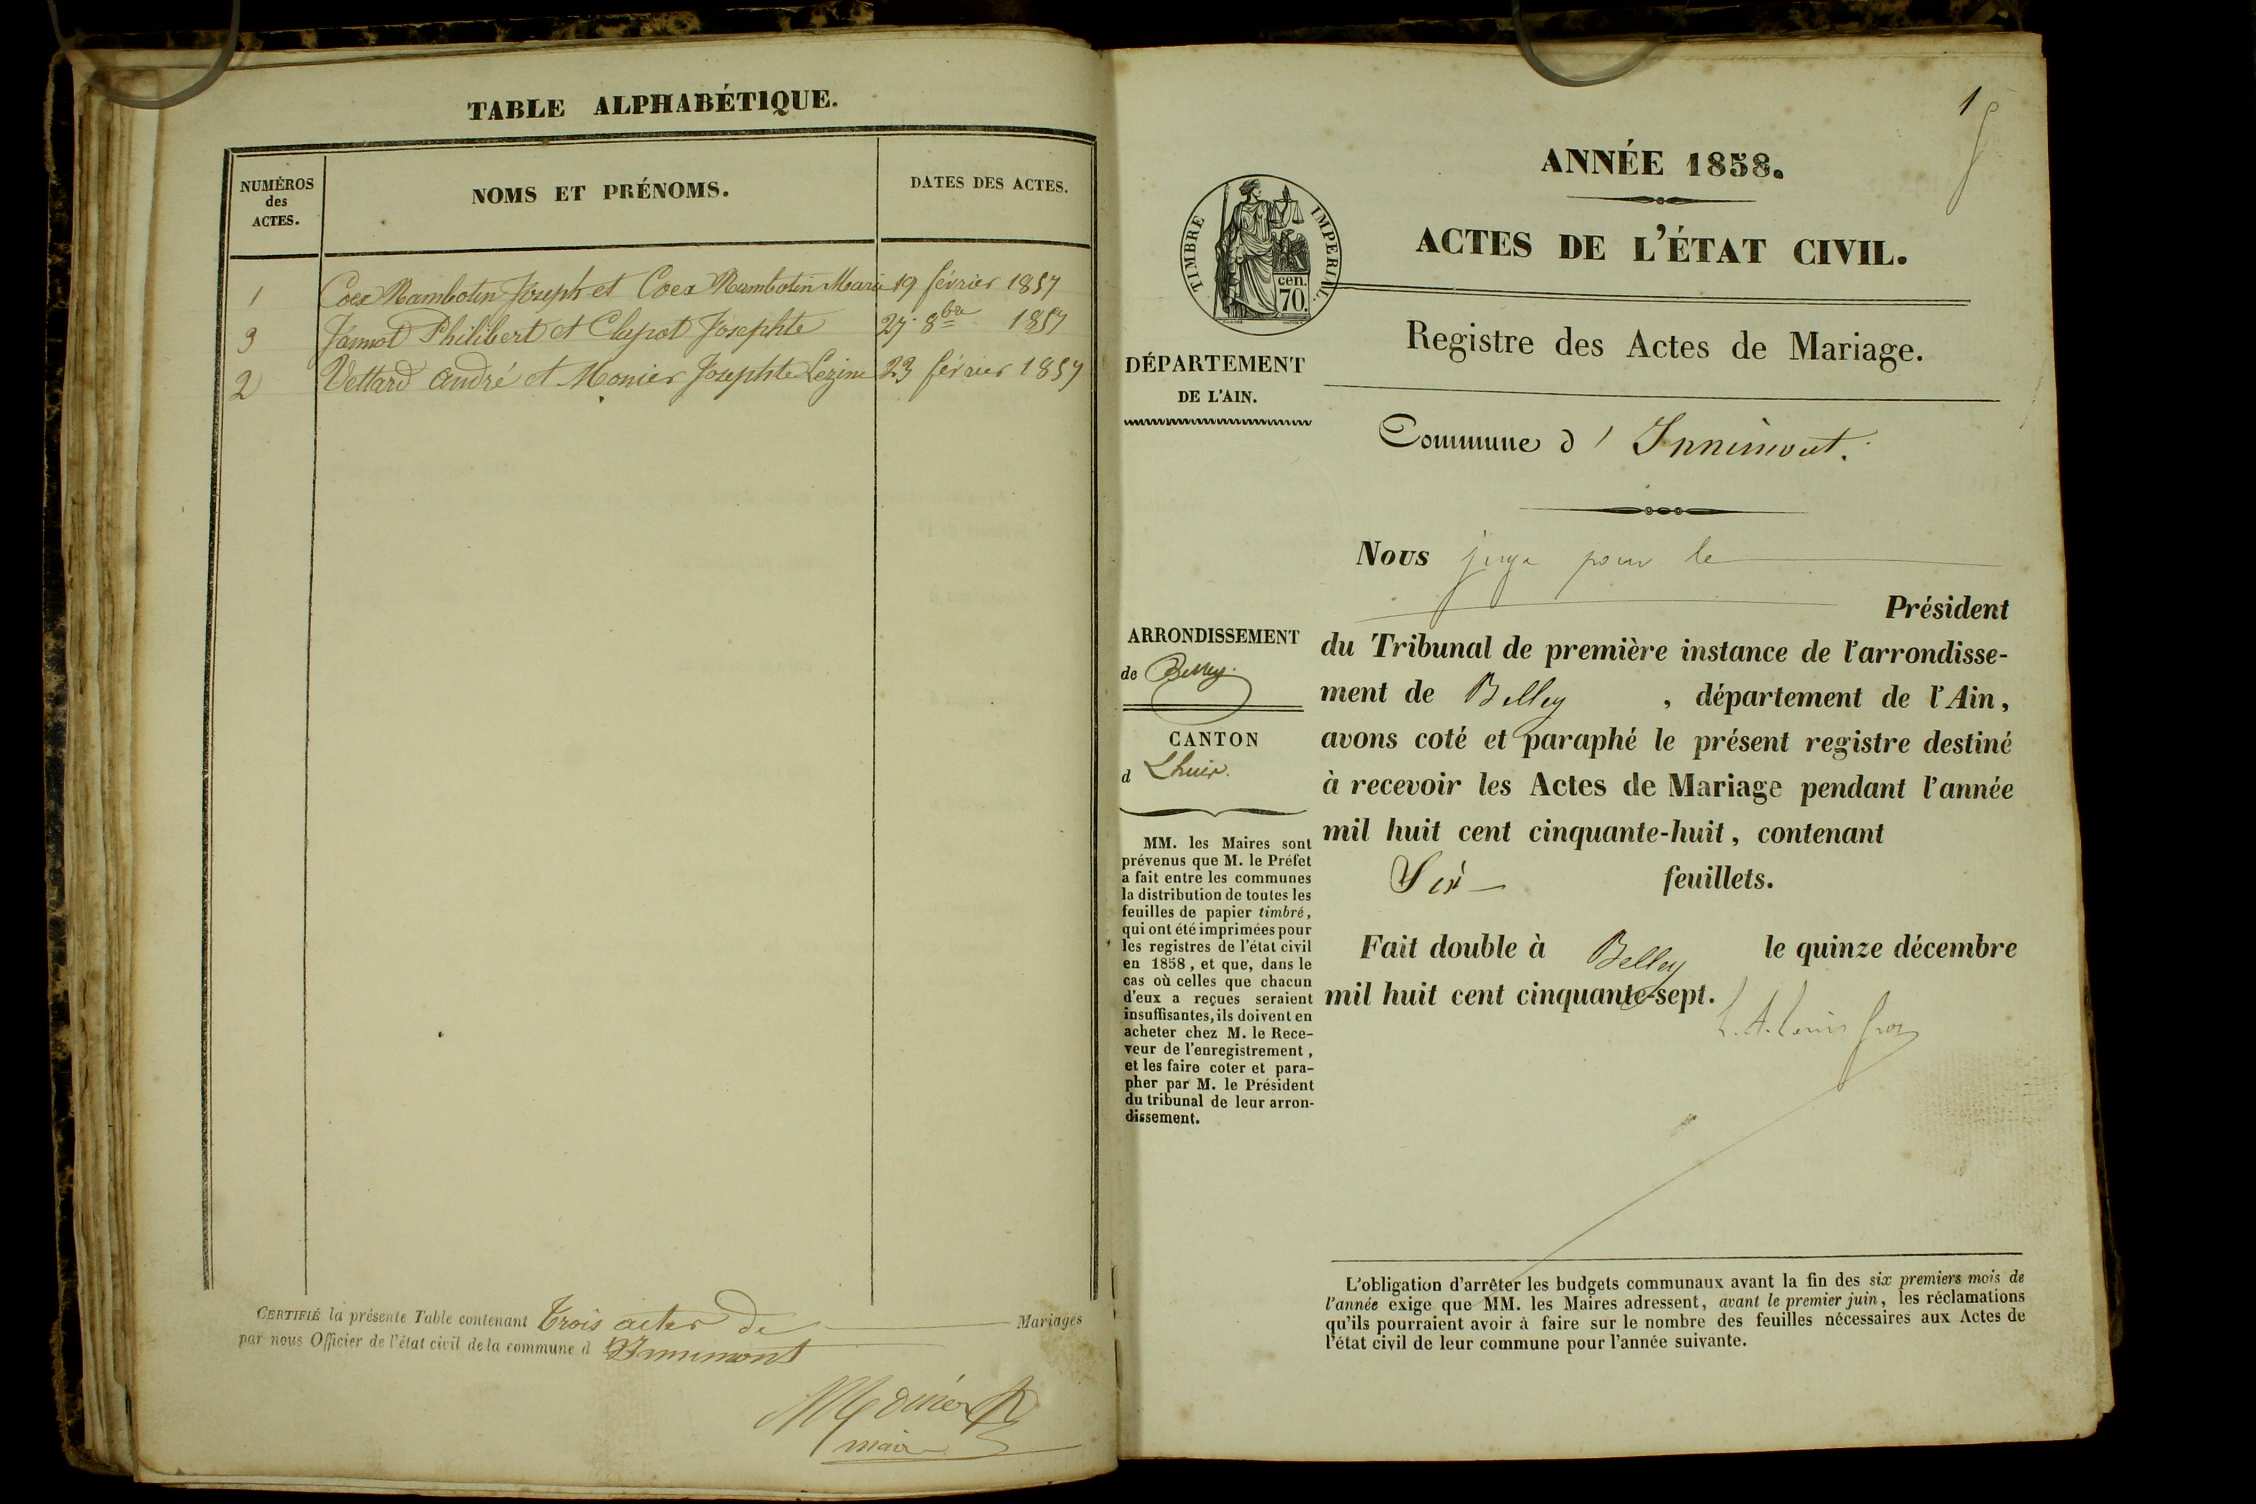 TABLE ALPHABÉTIQUE.
NUMÉROS
des
ACTES.
NOMS ET PRÉNOMS.
DATES DES ACTES.
1 Coex Rambotin Joseph et Coex Rambotin Marie 19 février 1857
3 Jannot Philibert et Clapot Josephte 27 8bre 1857
2 Vettard André et Monier Josephte Lézine 23 février 1857
CERTIFIÉ la présente Table contenant trois actes de Mariages
par nous Officier de l'état civil de la commune d'Innimont
Monier
maire
1
ANNÉE 1858.
ACTES DE L'ÉTAT CIVIL.
TIMBRE IMPERIAL.
cen.
70.
Registre des Actes de Mariage.
DÉPARTEMENT
DE L'AIN.
Commune d'Innimont.
Nous juge pour le
Président
du Tribunal de première instance de l'arrondisse-
ment de Belley, département de l'Ain,
avons coté et paraphé le présent registre destiné
à recevoir les Actes de Mariage pendant l'année
mil huit cent cinquante-huit, contenant
Six feuillets.
Fait double à Belley le quinze décembre
mil huit cent cinquante-sept.
ARRONDISSEMENT
de Belley.
CANTON
d Lhuis.
MM. les Maires sont
prévenus que M. le Préfet
a fait entre les communes
la distribution de toutes les
feuilles de papier timbré,
qui ont été imprimées pour
les registres de l'état civil
en 1858, et que, dans le
cas où celles que chacun
d'eux a reçues seraient
insuffisantes, ils doivent en
acheter chez M. le Rece-
veur de l'enregistrement,
et les faire coter et para-
pher par M. le Président
du tribunal de leur arron-
dissement.
L'obligation d'arrêter les budgets communaux avant la fin des six premiers mois de
l'année exige que MM. les Maires adressent, avant le premier juin, les réclamations
qu'ils pourraient avoir à faire sur le nombre des feuilles nécessaires aux Actes de
l'état civil de leur commune pour l'année suivante.